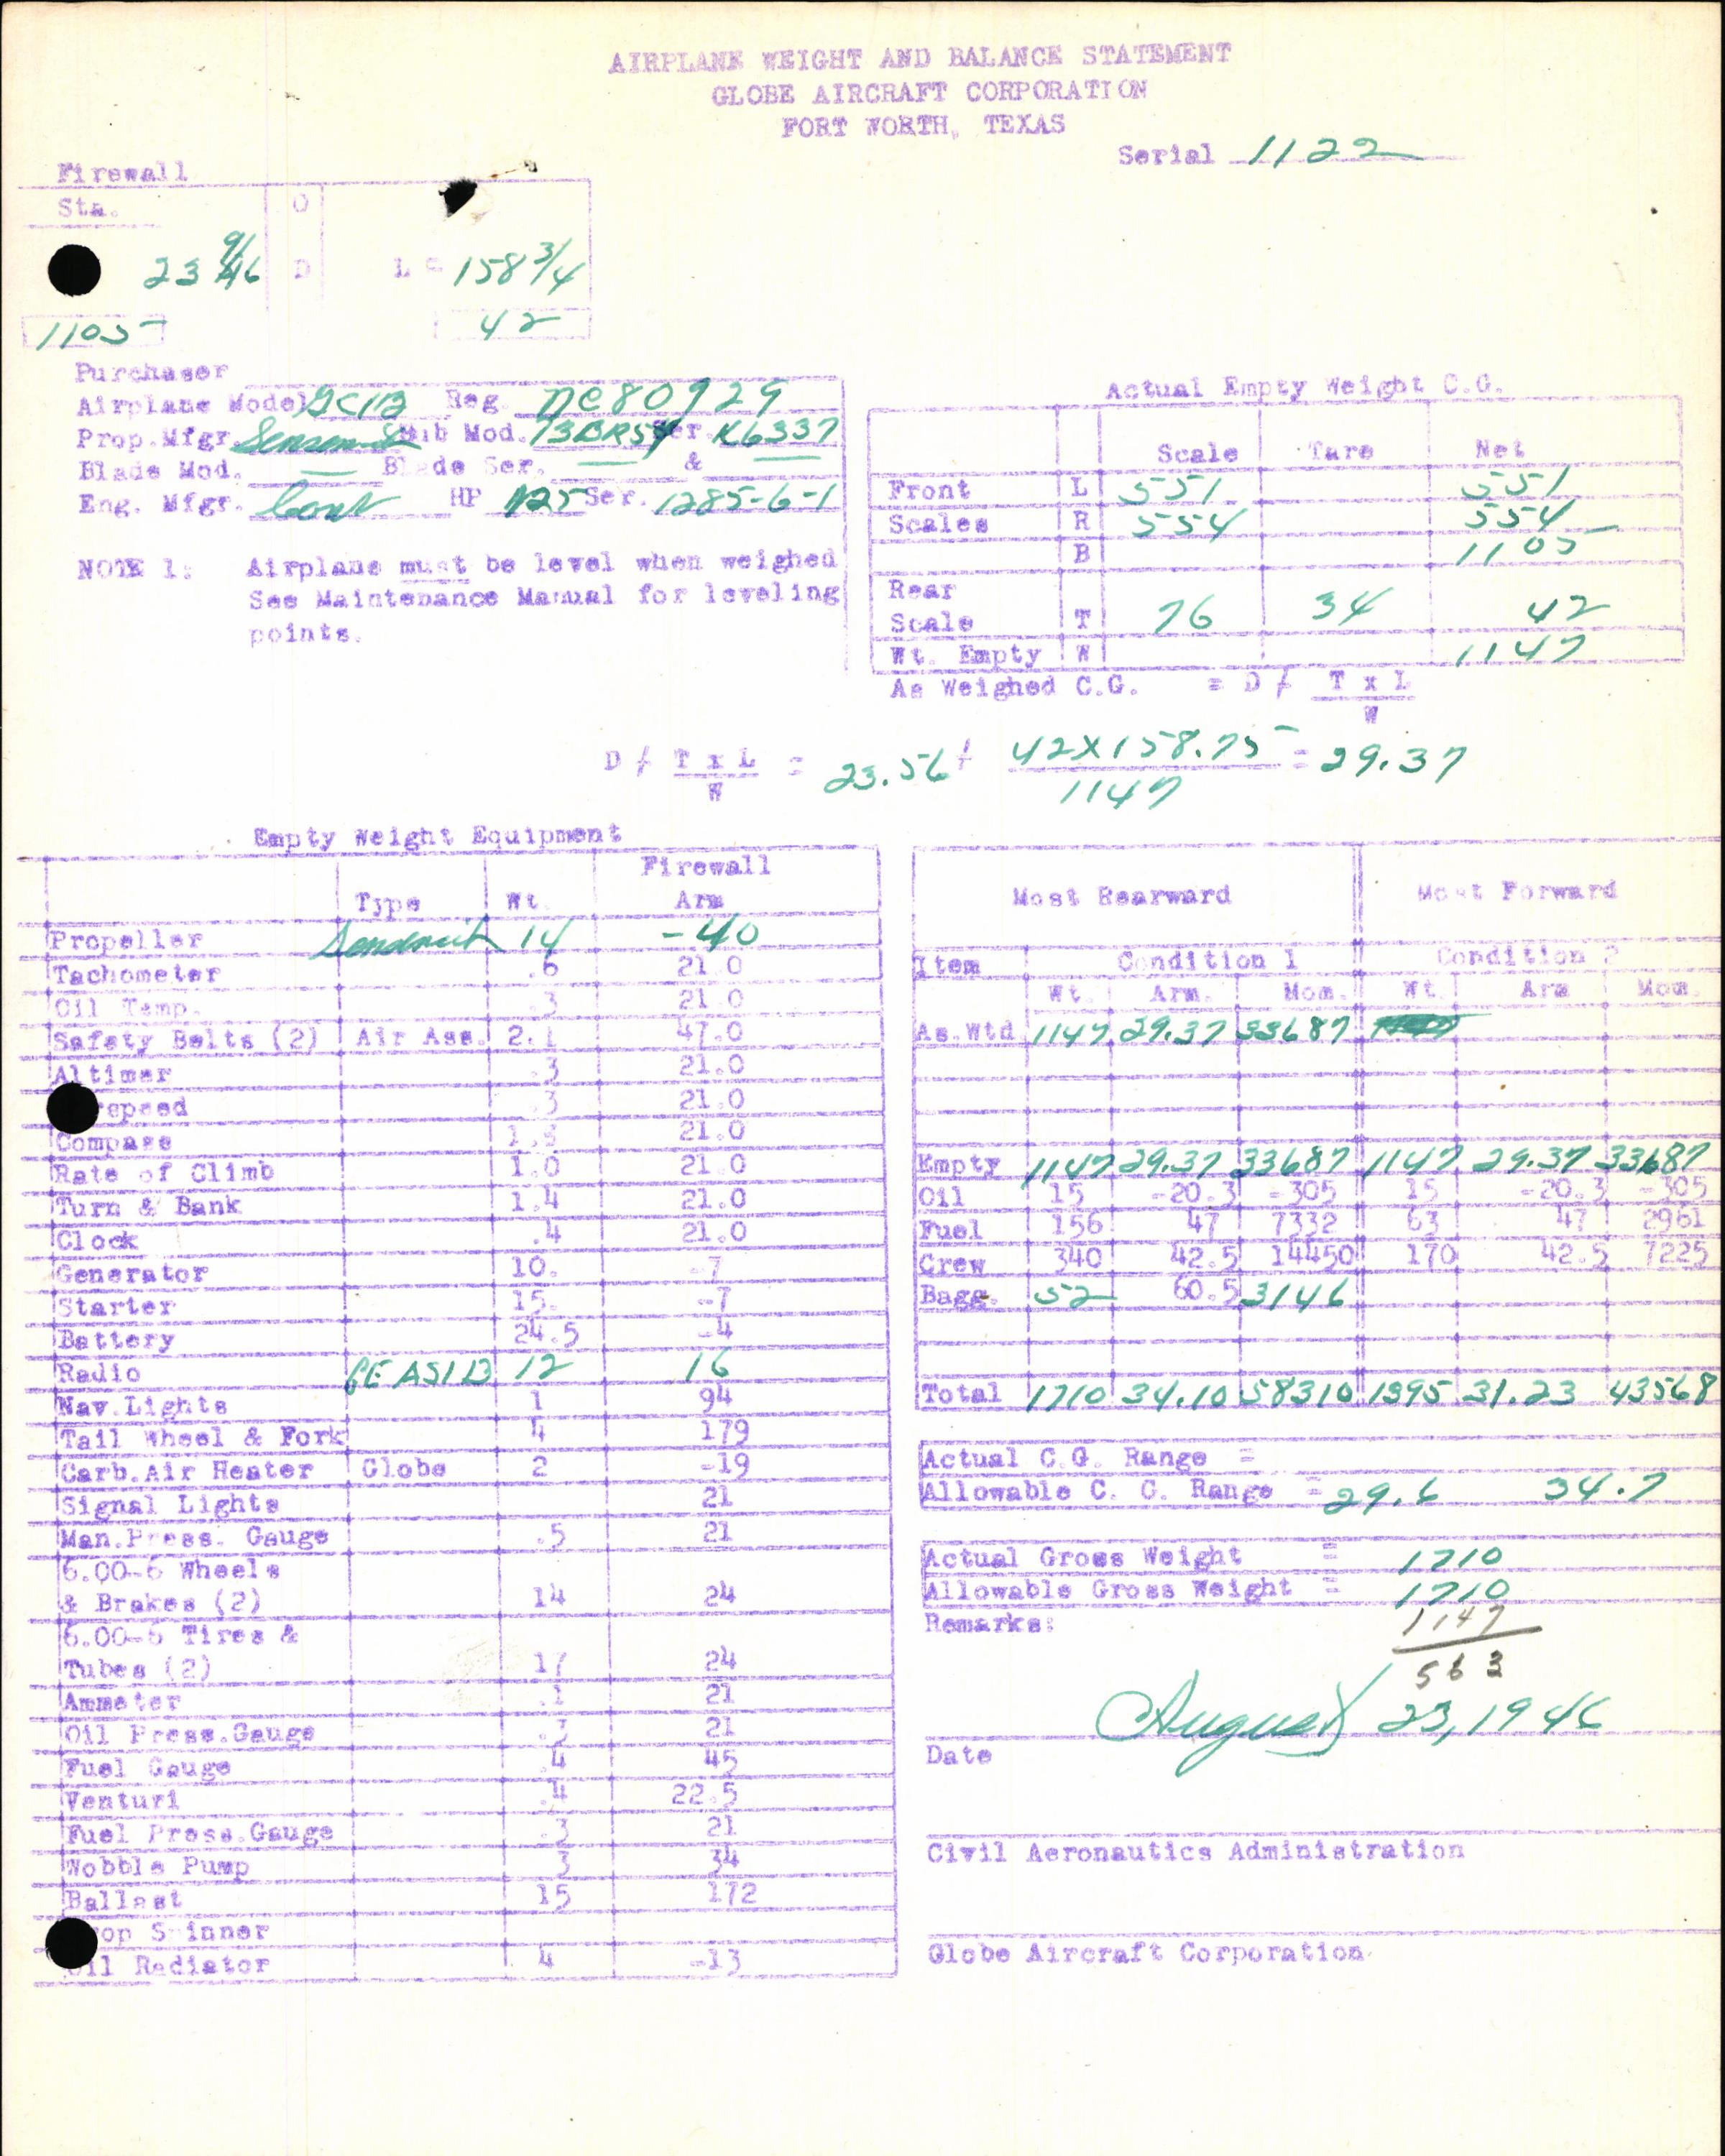 AIRPLANE WEIGHT AND BALANCE STATEMENT
GLOBE AIRCRAFT CORPORATION
FORT WORTH, TEXAS
Serial 1122
Firewall
Sta. O
23 9/16 D L = 158 3/4
1105 42
Purchaser
Airplane Model GC1B Reg. NC80929
Prop.Mfgr. Sensenich Hub Mod. 73BR54 Ser. K6337
Blade Mod. — Blade Ser. — & —
Eng. Mfgr. Cont HP 125 Ser. 1285-6-1
NOTE 1: Airplane must be level when weighed
See Maintenance Manual for leveling
points.
Actual Empty Weight C.G.
Scale Tare Net
Front L 551 551
Scales R 554 554
B 1105
Rear
Scale T 76 34 42
Wt. Empty W 1147
As Weighed C.G. = D / T x L
W
D / T x L = 23.56 + 42X158.75 = 29.37
W 1147
Empty Weight Equipment
Firewall
Type Wt. Arm
Propeller Sensenich 14 -40
Tachometer .6 21.0
Oil Temp. .3 21.0
Safety Belts (2) Air Ass. 2.1 47.0
Altimer .3 21.0
repeed .3 21.0
Compass 21.0
Rate of Climb 1.0 21.0
Turn & Bank 1.4 21.0
Clock .4 21.0
Generator 10. -7
Starter 15. -7
Battery 24.5 -4
Radio GE AS1B 12 16
Nav.Lights 1 94
Tail Wheel & Fork 4 179
Carb.Air Heater Globe 2 -19
Signal Lights 21
Man.Press. Gauge .5 21
6.00-6 Wheels
& Brakes (2) 14 24
6.00-6 Tires &
Tubes (2) 17 24
Ammeter .1 21
Oil Press.Gauge .3 21
Fuel Gauge .4 45
Venturi .4 22.5
Fuel Press.Gauge .3 21
Wobble Pump 3 34
Ballast 15 172
rop Spinner
Oil Radiator 4 -13
Most Rearward Most Forward
Item Condition 1 Condition 2
Wt. Arm. Mom. Wt. Arm Mom.
As.Wtd 1147 29.37 33687
Empty 1147 29.37 33687 1147 29.37 33687
Oil 15 -20.3 -305 15 -20.3 -305
Fuel 156 47 7332 63 47 2961
Crew 340 42.5 14450 170 42.5 7225
Bagg. 52 60.5 3146
Total 1710 34.10 58310 1395 31.23 43568
Actual C.G. Range =
Allowable C. G. Range = 29.6 34.7
Actual Gross Weight = 1710
Allowable Gross Weight = 1710
Remarks: 1147
563
August 23, 1946
Date
Civil Aeronautics Administration
Globe Aircraft Corporation